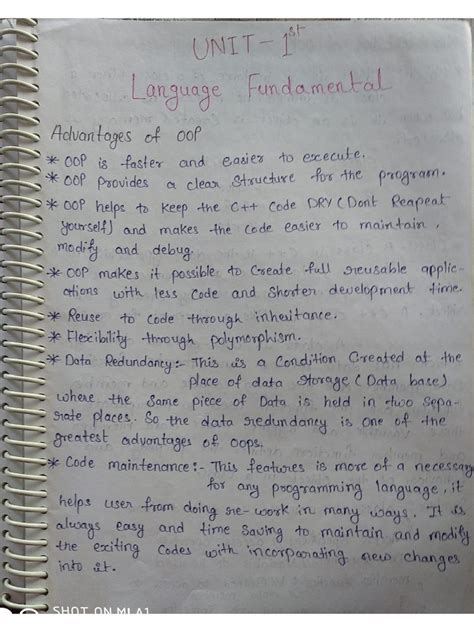 UNIT - 1st
Language Fundamental
Advantages of OOP
* OOP is faster and easier to execute.
* OOP Provides a clear Structure for the program.
* OOP helps to keep the C++ Code DRY (Dont Reapeat
yourself) and makes the code easier to maintain,
modify and debug.
* OOP makes it possible to Create full reusable applic-
ations with less Code and Shorter development time.
* Reuse to code through inheritance.
* Flexibility through polymorphism.
* Data Redundancy:- This is a Condition Created at the
place of data storage (Data base)
where the Same piece of Data is held in two Sepa-
rate places. So the data redundancy is one of the
greatest advantages of oops.
* Code maintenance:- This features is more of a necessary
for any programming language, it
helps user from doing re-work in many ways. It is
always easy and time saving to maintain and modify
the exciting Codes with incorporating new changes
into it.
SHOT ON MI A1